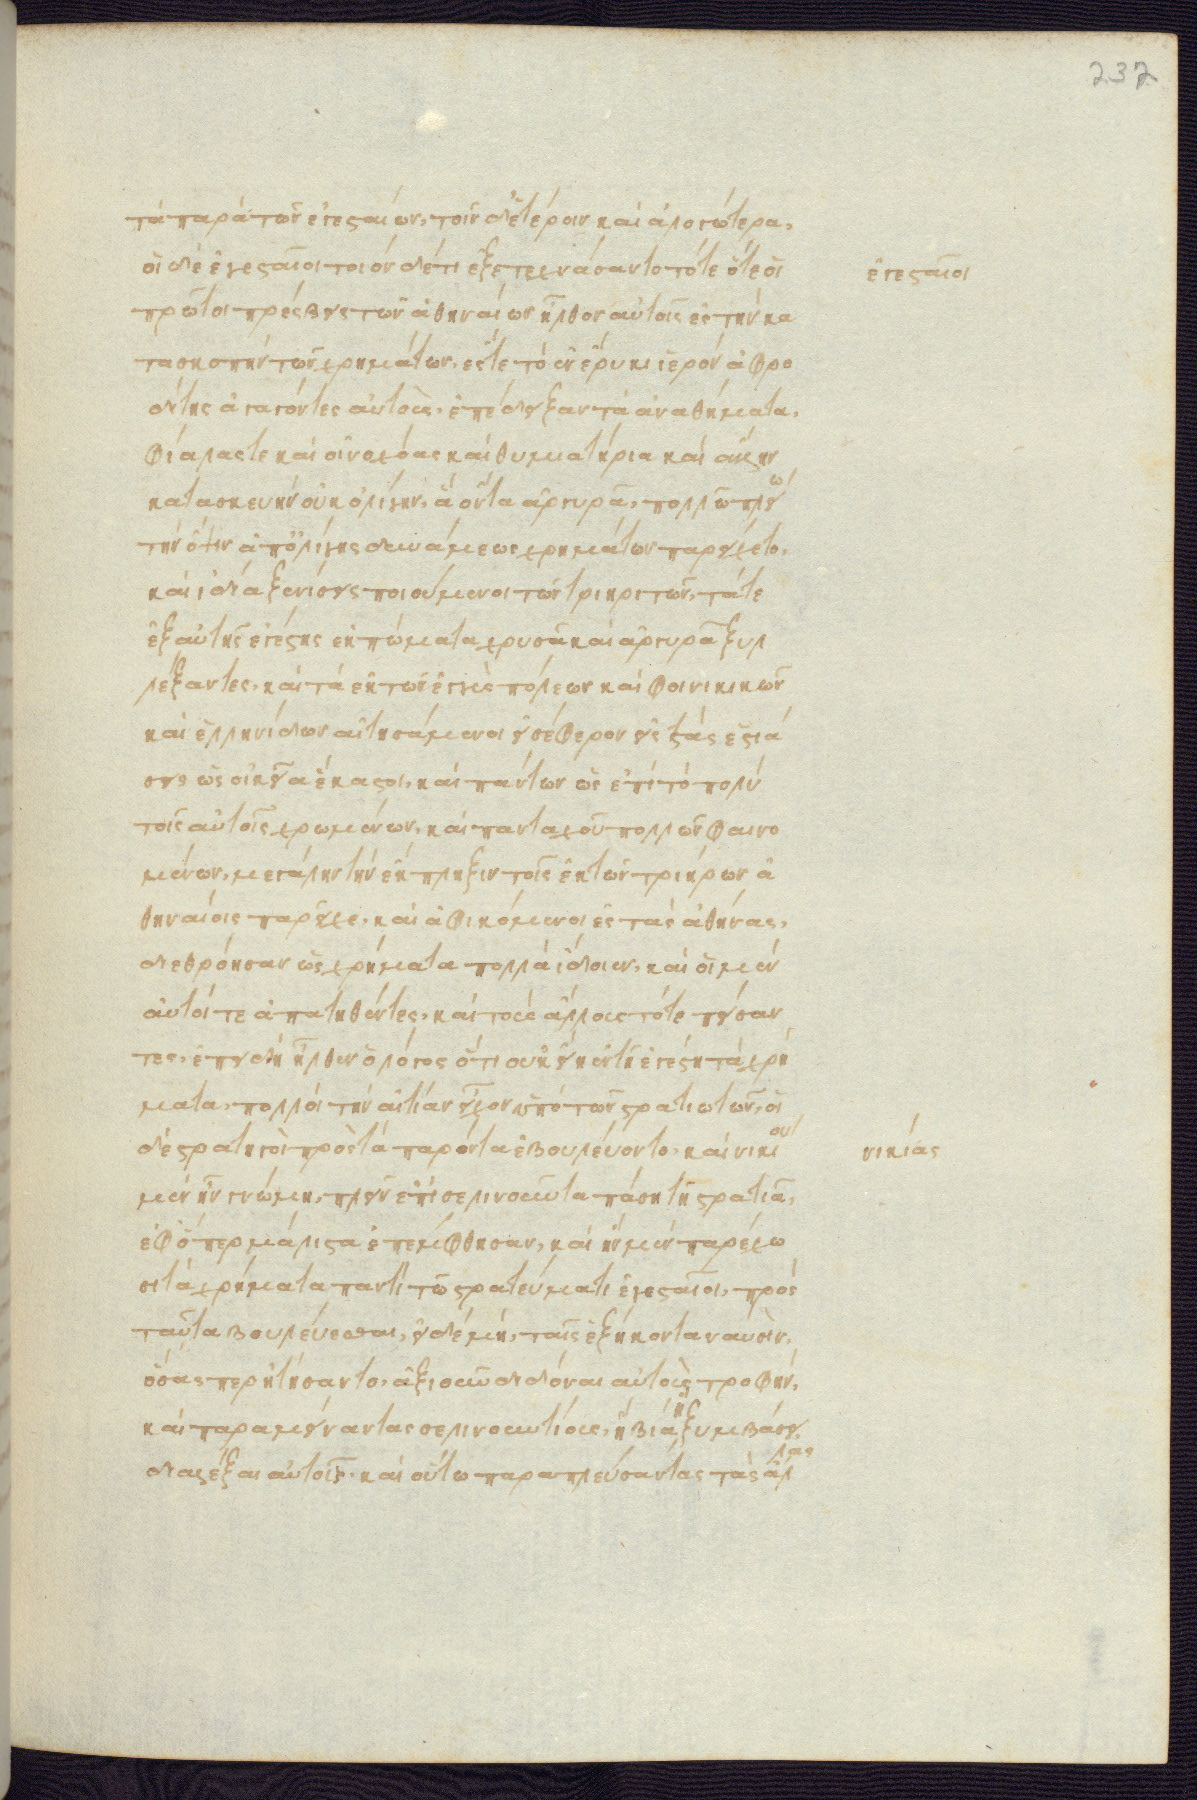 237
τὰ παρὰ τῶν ἐγεσταίων, τοῖν δ' ἑτέροιν καὶ ἀλογώτερα.
οἱ δὲ ἐγεσταῖοι τοιόνδέ τι ἐξετεχνήσαντο τότε ὅτε οἱ
ἐγεσταῖοι
πρῶτοι πρέσβεις τῶν ἀθηναίων ἦλθον αὐτοῖς ἐς τὴν κα
τασκοπὴν τῶν χρημάτων. ἔς τε τὸ ἐν ἔρυκι ἱερὸν ἀφρο
δίτης ἀγαγόντες αὐτοὺς, ἐπέδειξαν τὰ ἀναθήματα.
φιάλας τε καὶ οἰνοχόας καὶ θυμιατήρια καὶ ἄλλην
κατασκευὴν οὐκ ὀλίγην. ἃ ὄντα ἀργυρᾶ, πολλῷ πλείω
τὴν ὄψιν ἀπ' ὀλίγης δυνάμεως χρημάτων παρείχετο.
καὶ ἰδίᾳ ξενίσεις ποιούμενοι τῶν τριηριτῶν, τά τε
ἐξ αὐτῆς ἐγέστης ἐκπώματα χρυσᾶ καὶ ἀργυρᾶ ξυλ
λέξαντες, καὶ τὰ ἐκ τῶν ἐγγὺς πόλεων καὶ φοινικικῶν
καὶ ἑλληνίδων αἰτησάμενοι ἐσέφερον ἐς τὰς ἑστιά
σεις ὡς οἰκεῖα ἕκαστοι, καὶ πάντων ὡς ἐπὶ τὸ πολὺ
τοῖς αὐτοῖς χρωμένων, καὶ πανταχοῦ πολλῶν φαινο
μένων, μεγάλην τὴν ἔκπληξιν τοῖς ἐκ τῶν τριήρων ἀ
θηναίοις παρεῖχε. καὶ ἀφικόμενοι ἐς τὰς ἀθήνας,
διεθρόησαν ὡς χρήματα πολλὰ ἴδοιεν. καὶ οἱ μὲν
αὐτοί τε ἀπατηθέντες, καὶ τοὺς ἄλλους τότε πείσαν
τες, ἐπειδὴ ἦλθεν ὁ λόγος ὅτι οὐκ εἴη ἐν τῇ ἐγέστῃ τὰ χρή
ματα, πολλοὶ τὴν αἰτίαν εἶχον ὑπὸ τῶν στρατιωτῶν. οἱ
δὲ στρατηγοὶ πρὸς τὰ παρόντα ἐβουλεύοντο. καὶ νικίου
νικίας
μὲν ἦν γνώμη, πλεῖν ἐπὶ σελινοῦντα πάσῃ τῇ στρατιᾷ,
ἐφ' ὅπερ μάλιστα ἐπέμφθησαν. καὶ ἢν μὲν παρέχω
σι τὰ χρήματα παντὶ τῷ στρατεύματι ἐγεσταῖοι, πρὸς
ταῦτα βουλεύεσθαι, εἰ δὲ μή, ταῖς ἑξήκοντα ναυσὶν,
ὅσας περ ᾐτήσαντο, ἀξιοῦν διδόναι αὐτοὺς τροφήν,
καὶ παραμείναντας σελινουντίους, ἢ βίᾳ ἢ ξυμβάσει
διαλλάξαι αὐτοῖς. καὶ οὕτω παραπλεύσαντας τὰς ἄλλας